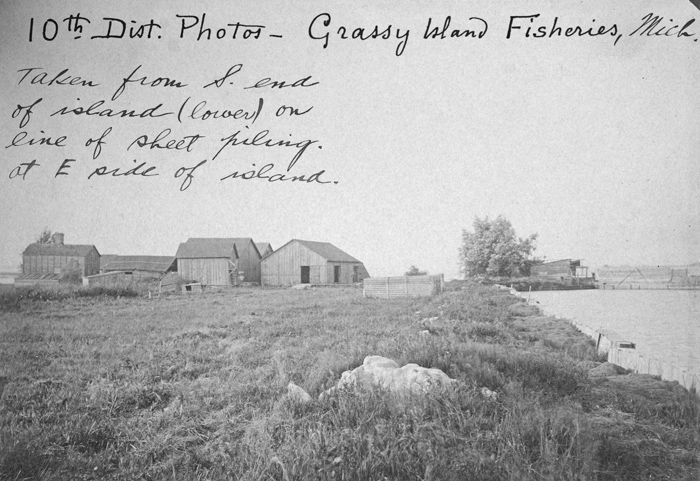 10th Dist. Photos - Grassy Island Fisheries, Mich.
Taken from S. end
of island (lower) on
line of sheet piling.
at E side of island.